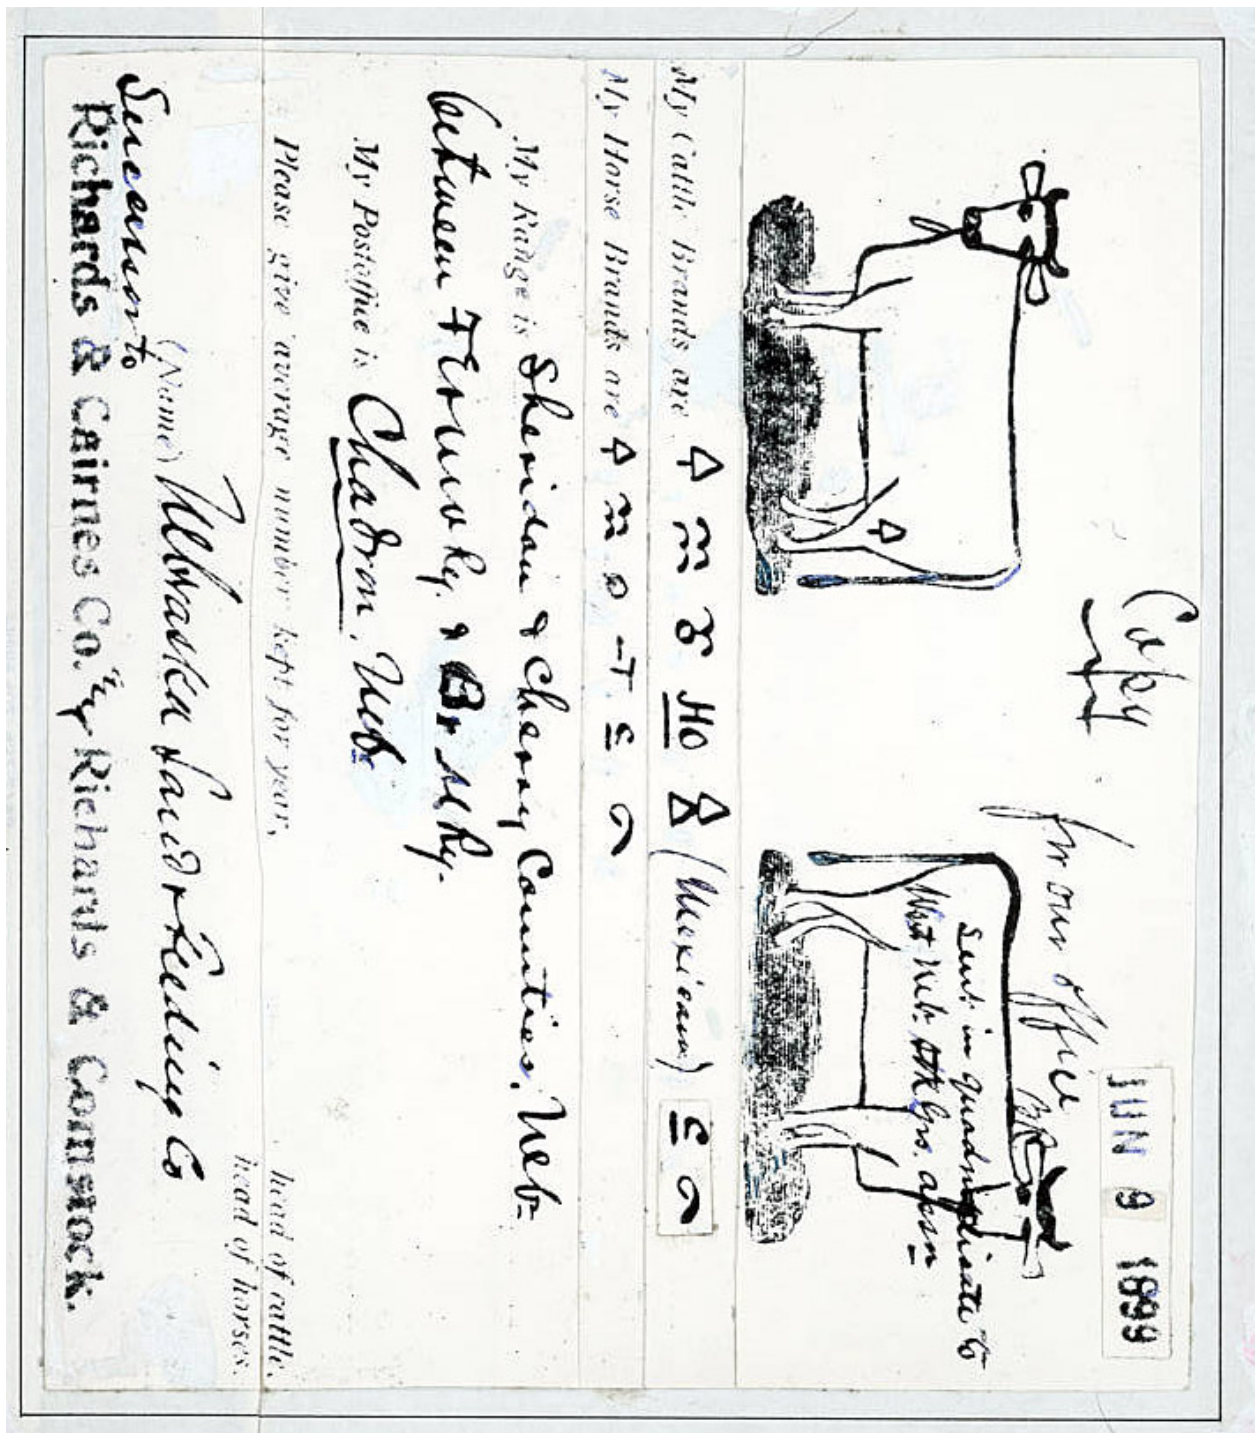 Copy
for our office
JUN 9 1899
Sent in quadruplicate to
West Neb. Stk Grs. assn
My Cattle Brands are HO (Mexicans) S
My Horse Brands are
My Range is Sheridan & Cherry Counties, Neb-
between F E & M V Ry. & B & M Ry.
My Postoffice is Chadron, Neb
Please give average number kept for year,
head of cattle.
head of horses.
(Name) Nebraska Land & Feeding Co
Successor to
Richards & Cairnes Co. & Richards & Comstock.